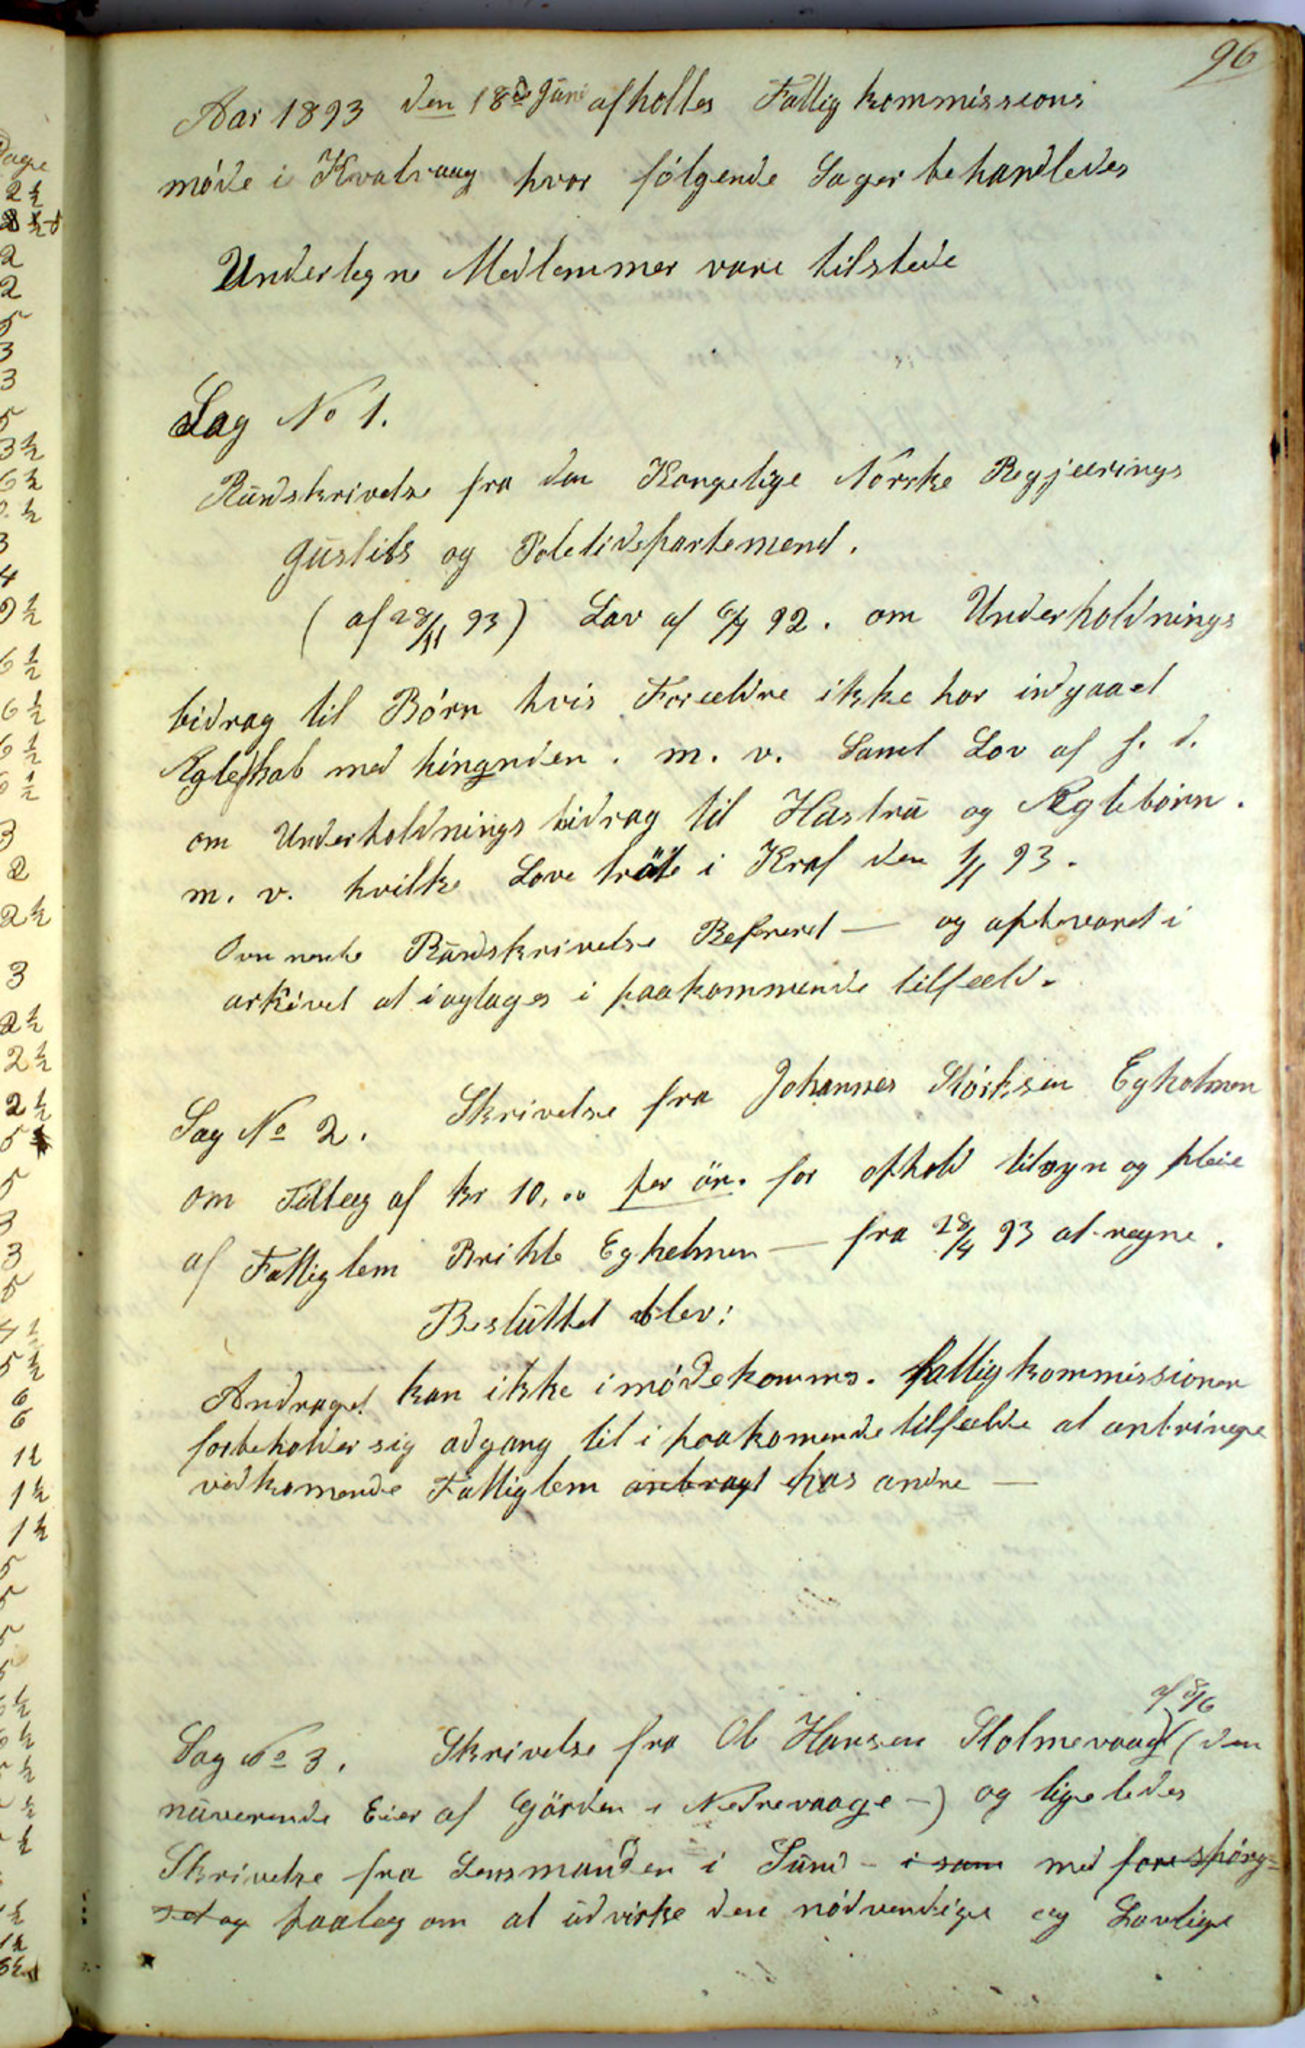 96
Aar 1893 den 18de Juni afholtes Fattigkommissions
møde i Kvalvaag hvor følgende Sager behandledes
Undertegne Medlemmer vare tilstede
Sag No 1.
Rundskrivelse fra den Kongelige Norske Regjeerings
Justits og Politidepartemend.
(af 28/11 93) Lov af 6/7 92. om Underholdnings
bidrag til Børn hvis Foreældre ikke har indgaaet
Ægteskab med hingnden. m. v. Samt Lov af s. d.
om Underholdnings bidrag til Hustru og Ægtebørn.
m. v. hvilke Love träte i Kraf den 1/1 93.
Ovennente Rundskrivelse Refereret — og opbevaret i
arkivet at iagtages i paakommende tilfæld.
Sag No 2. Skrivelse fra Johannes Størksen Egholmen
om Tillæg af kr 10,00 per år. for ophold tilsyn og pleie
af Fattiglem Brithe Egholmen — fra 28/4 93 at regne.
Besluttet blev:
Andraget kan ikke imødekomms. Fattigkommissionen
forbeholder sig adgang til i paakomende tilfælde at anbringe
vedkomende Fattiglem anbragt hos andre —
af 8/6
Sag No 3. Skrivelse fra Ol Hansen Stolmevaag (den
nuverende Eier af Gården i Nedrevaage —) og ligeledes
Skrivelse fra Lensmanden i Sund – i sam med forespørg=
sel og paalæg om at udvirke den nødvendige og Lovlige